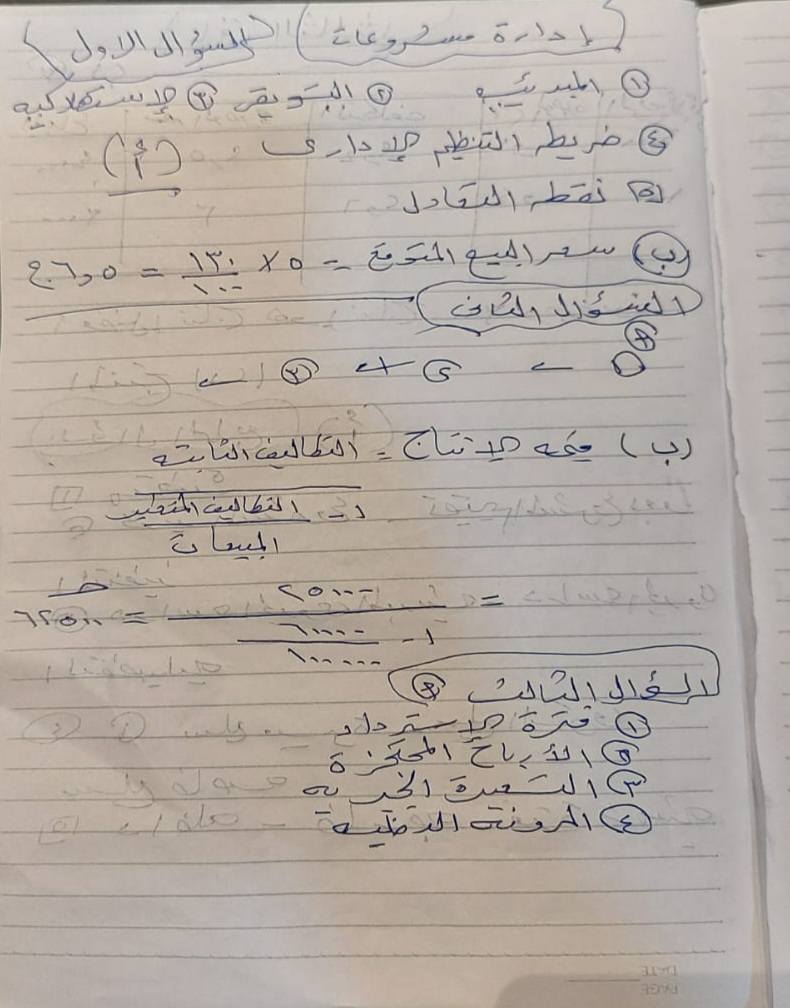 إدارة مشروعات) السؤال الاول
① المبدئيه ② التسويقى ③ الإستهلاكيه
④ خريطه التنظيم الإدارى (أ)
⑤ نقطه التعادل
(ب) سعر البيع المتوقع = ٥ × ١٣٠/١٠٠ = ٦,٥ ج
السؤال الثانى
(ب) قيمه الإنتاج = التكاليف الثابته
١ - التكاليف المتغيره
المبيعات
= ٢٥٠٠٠ = ٦٢٥٠٠
١ - ٦٠٠٠٠
١٠٠٠٠٠
السؤال الثالث
① فترة الإسترداد
② الأرباح المحتجزة
③ التسعيرة الجبريه
④ المرونة
DATE
PAGE